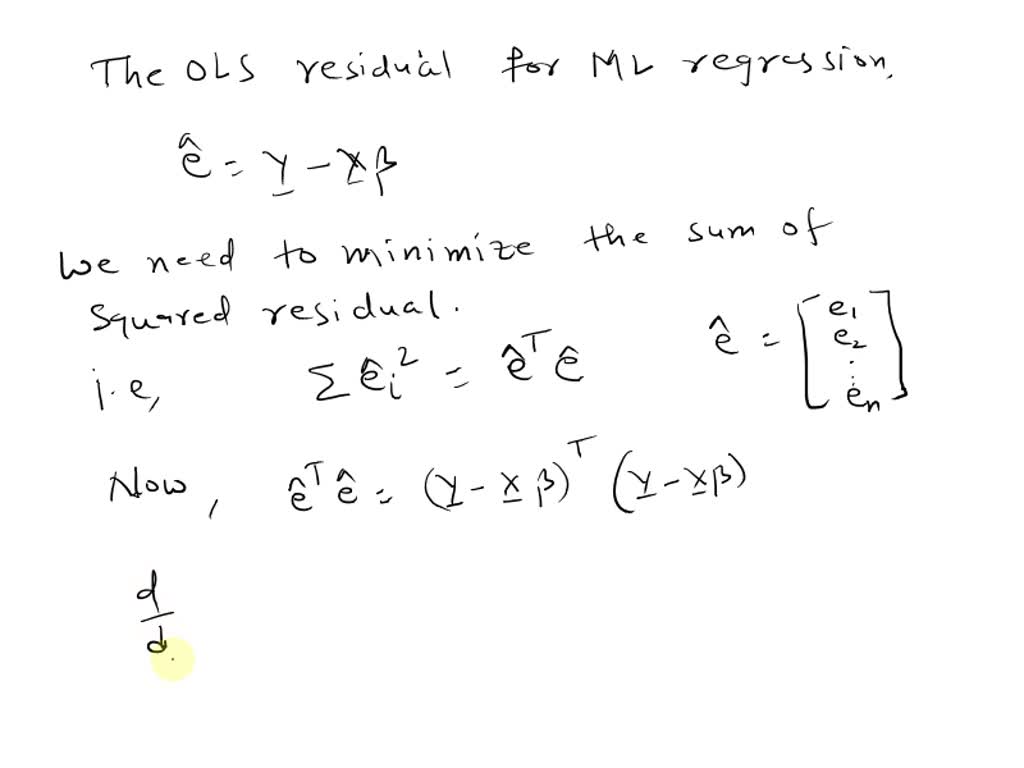 The OLS residual for ML regression.
ê = Y - Xβ
We need to minimize the sum of
squared residual.
i.e, Σ êᵢ² = êᵀ ê ê = [e₁ e₂ ⋮ eₙ]
Now, êᵀ ê = (Y - Xβ)ᵀ (Y - Xβ)
d/d